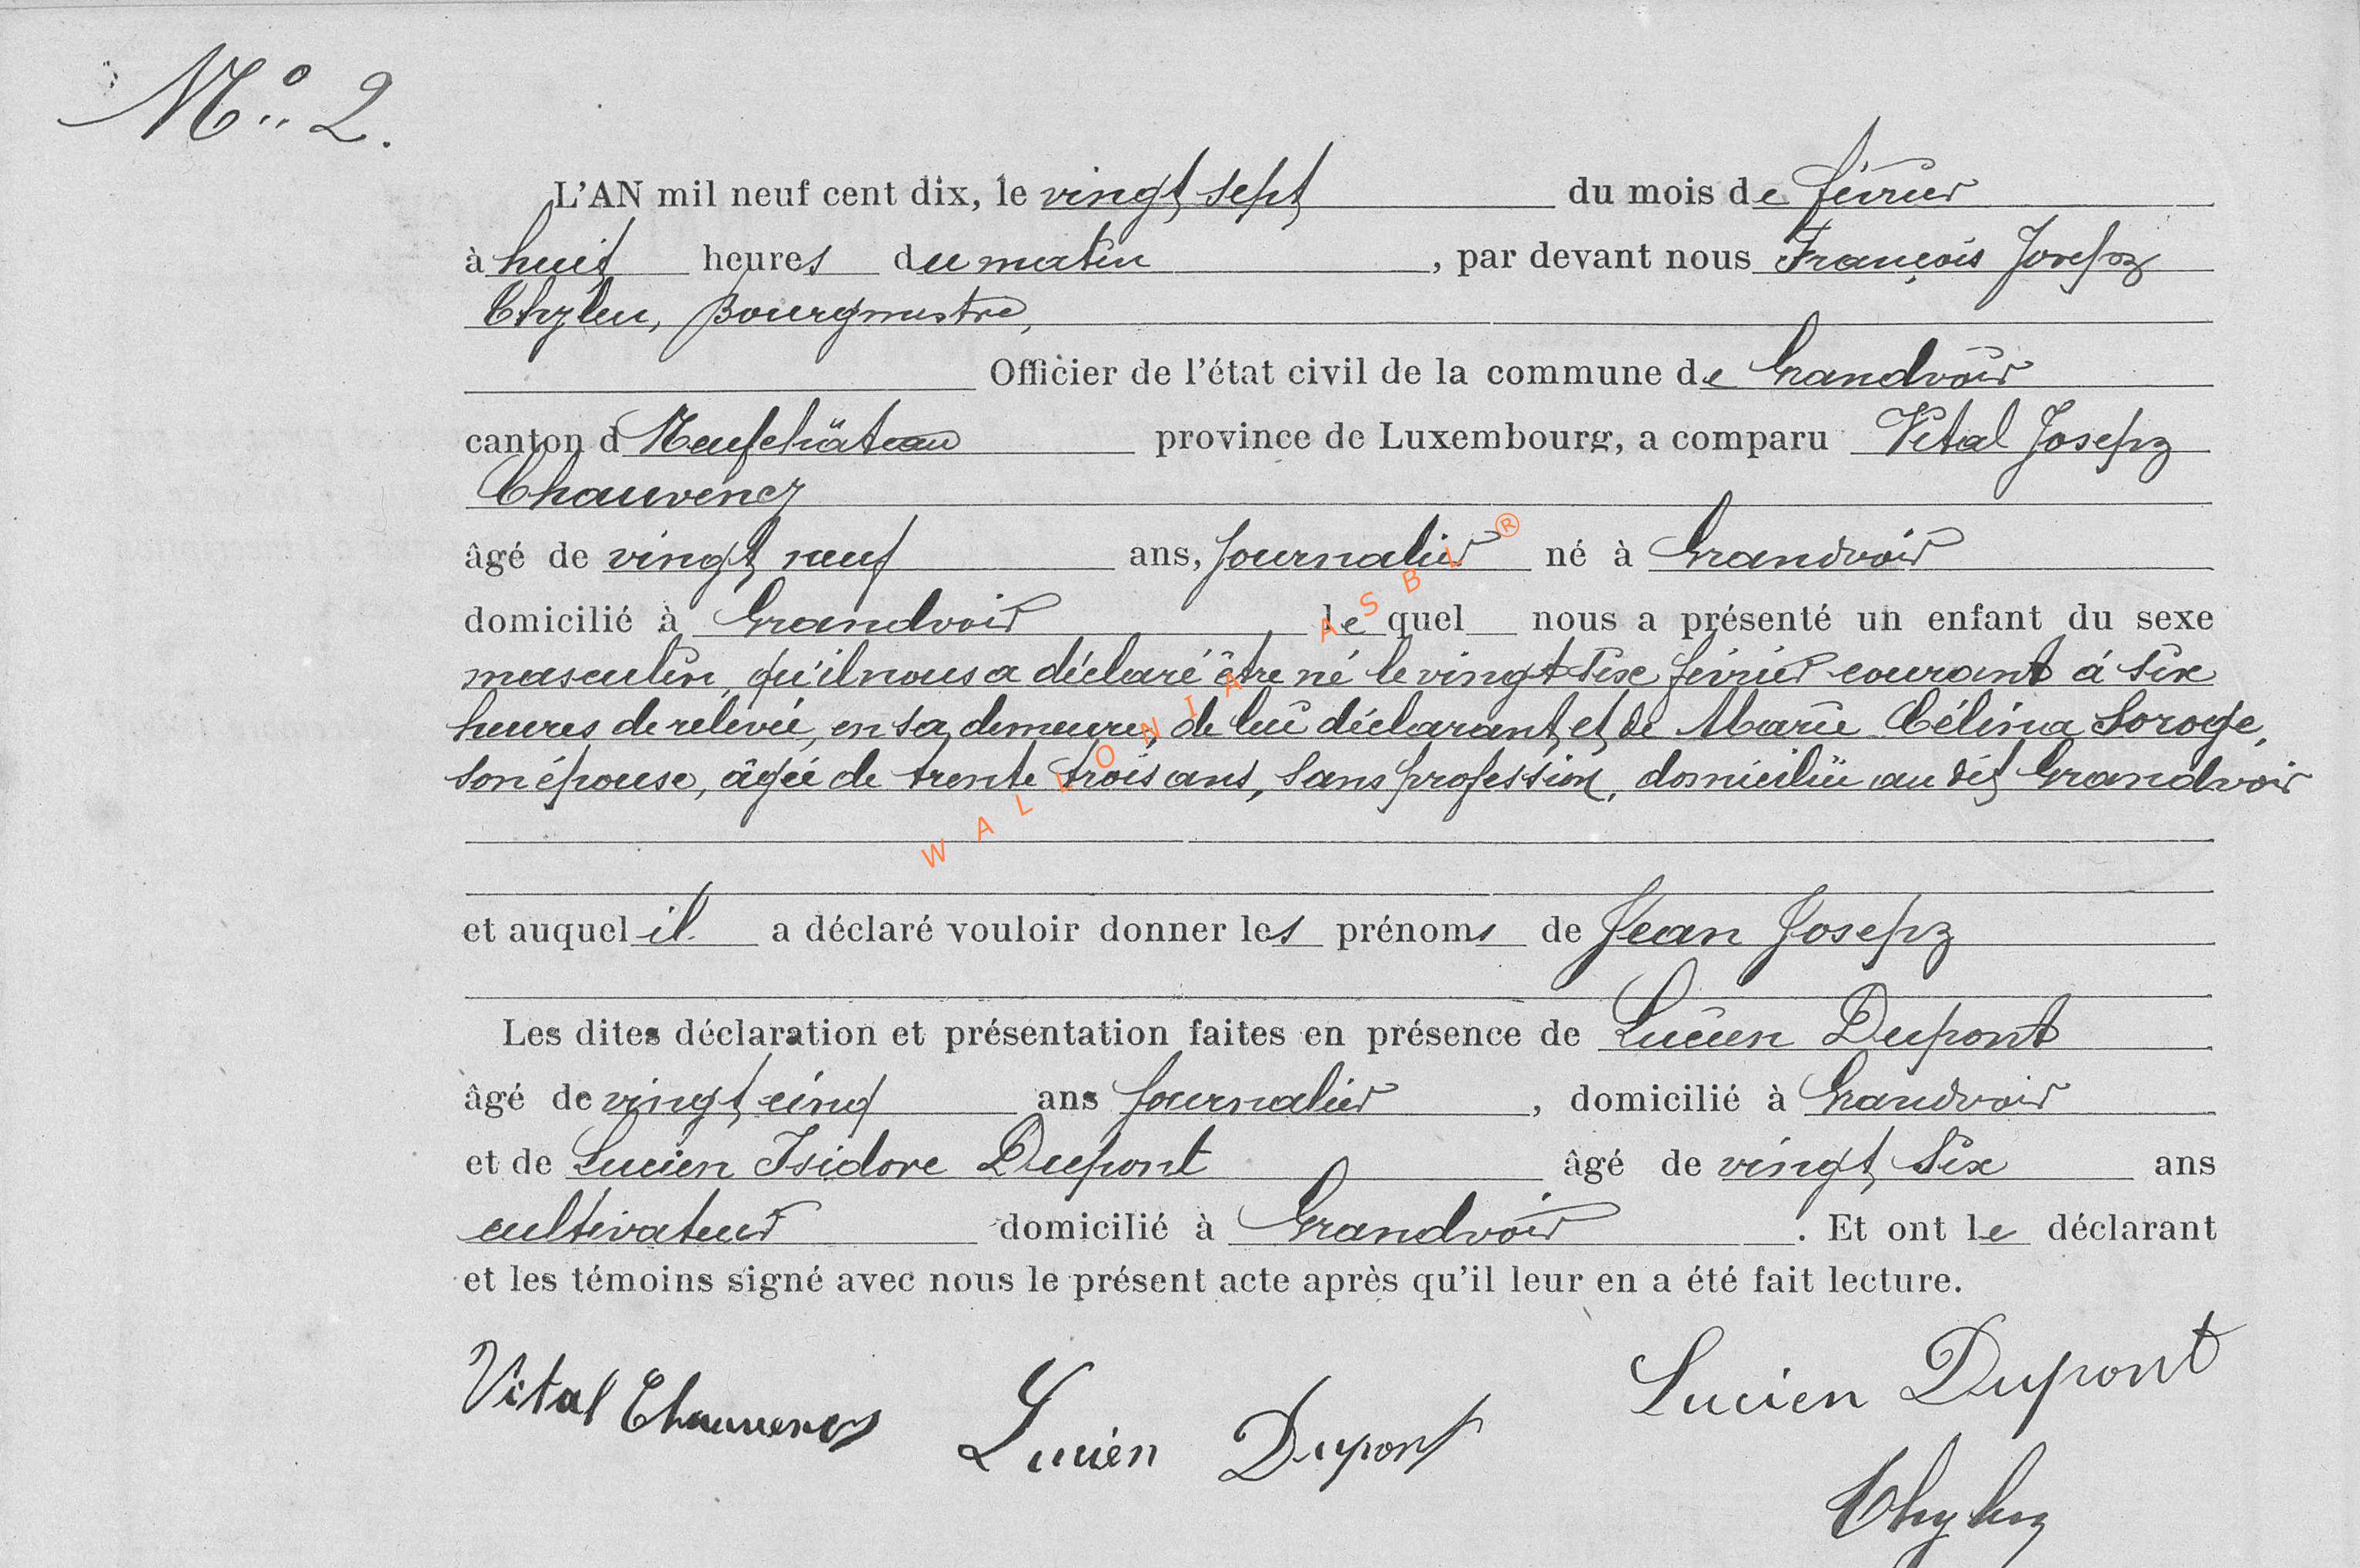 No. 2.
L'AN mil neuf cent dix, le vingt sept du mois de février
à huit heures du matin, par devant nous François Joseph
Thylen, Bourgmestre,
Officier de l'état civil de la commune de Grandvoir
canton d Neufchâteau province de Luxembourg, a comparu Vital Joseph
Chauvency
âgé de vingt neuf ans, journalier né à Grandvoir
domicilié à Grandvoir lequel nous a présenté un enfant du sexe
masculin, qu'il nous a déclaré être né le vingt six février courant à six
heures de relevée, en sa demeure, de lui déclarant et de Marie Célina
son épouse, âgée de trente trois ans, sans profession, domiciliée au dit Grandvoir
et auquel il a déclaré vouloir donner les prénoms de Jean Joseph
Les dites déclaration et présentation faites en présence de Lucien Dupont
âgé de vingt cinq ans journalier, domicilié à Grandvoir
et de Lucien Isidore Dupont âgé de vingt six ans
cultivateur domicilié à Grandvoir. Et ont le déclarant
et les témoins signé avec nous le présent acte après qu'il leur en a été fait lecture.
Vital Chauvency Lucien Dupont Lucien Dupont
WALLONIA ASBL ®